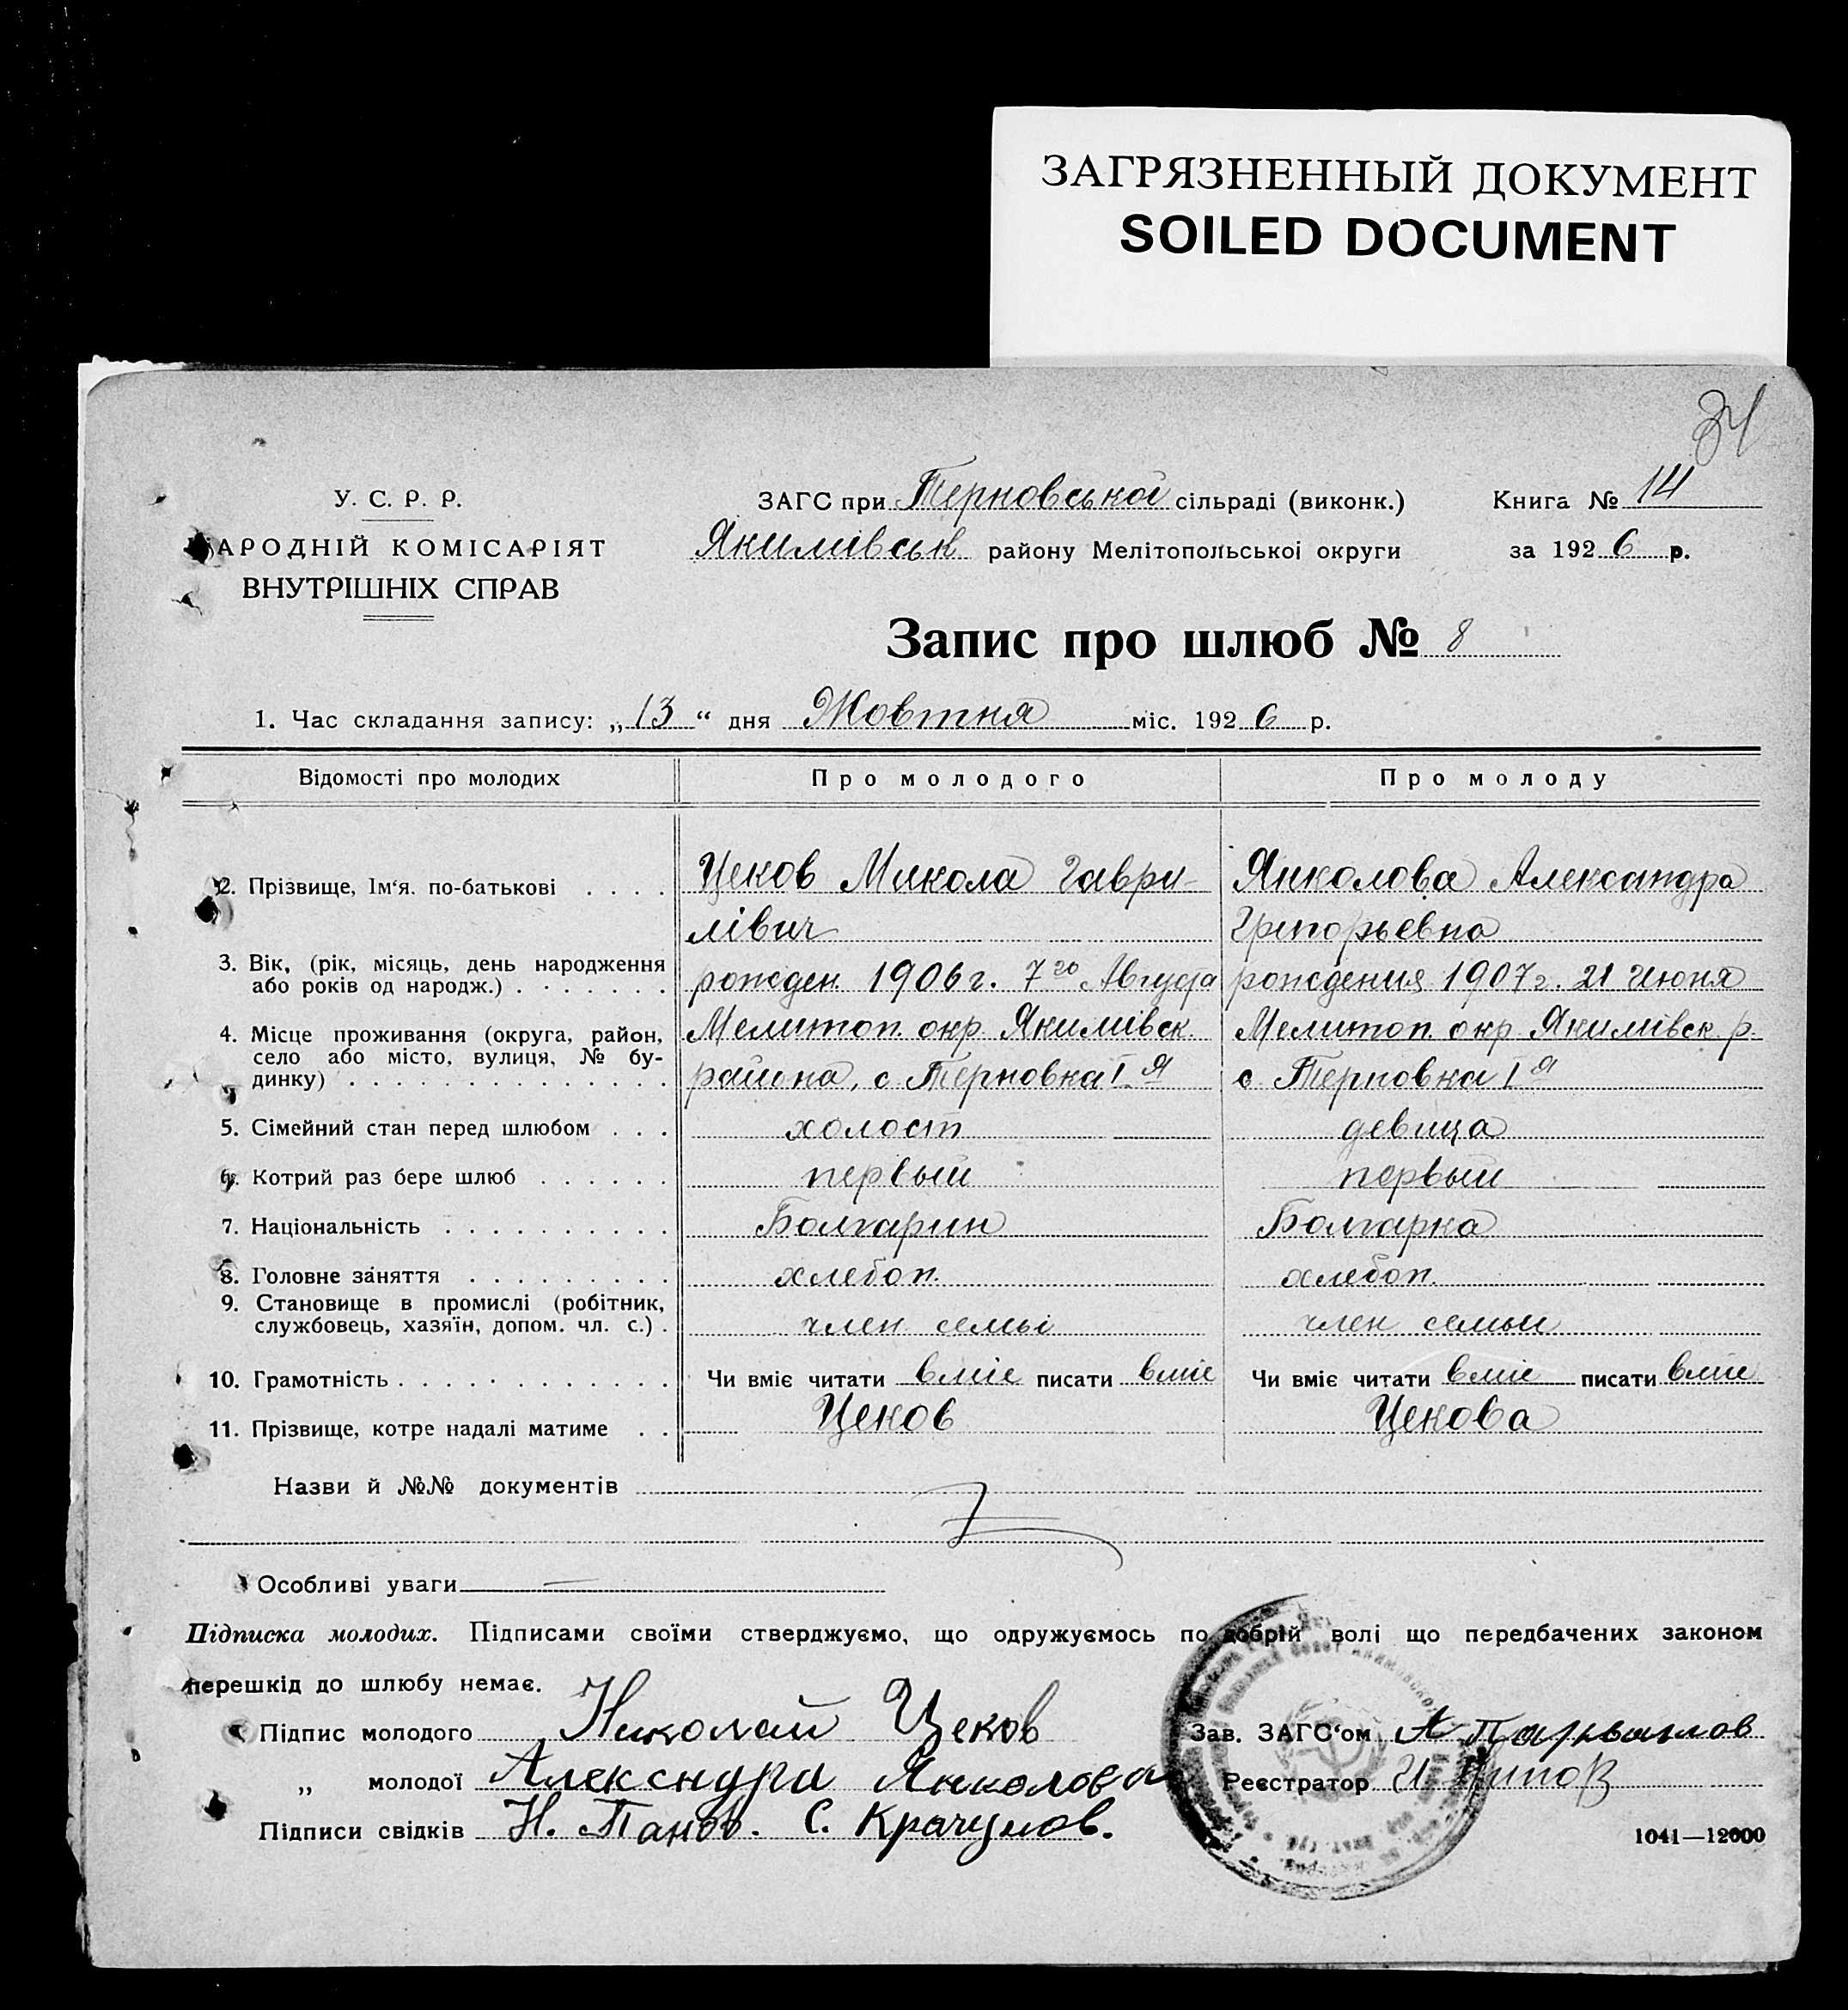 ЗАГРЯЗНЕННЫЙ ДОКУМЕНТ
SOILED DOCUMENT
34
У. С. Р. Р.
НАРОДНІЙ КОМІСАРІЯТ
ВНУТРІШНІХ СПРАВ
ЗАГС при Терновської сільраді (виконк.)
Якимівськ району Мелітопольської округи
Книга № 14
за 1926 р.
Запис про шлюб № 8
1. Час складання запису: „13“ дня Жовтня міс. 1926 р.
Відомості про молодих Про молодого Про молоду
2. Прізвище, Ім‘я. по-батькові . . . . Цеков Микола Гаври- Янколова Александра
лівич Григорьевна
3. Вік, (рік, місяць, день народження
або років од народж.) . . . . . . . рожден. 1906 г. 7го Августа рождения 1907 г. 21 Июня
4. Місце проживання (округа, район, Мелитоп. окр. Якимівск. Мелитоп. окр Якимівск. р.
село або місто, вулиця, № бу-
динку) . . . . . . . . . . . . . . района, с. Терновка I я с. Терновка I я
5. Сімейний стан перед шлюбом . . . холост девица
6. Котрий раз бере шлюб . . . . . . первый первый
7. Національність . . . . . . . . . . Болгарин Болгарка
8. Головне заняття . . . . . . . . . хлебоп. хлебоп.
9. Становище в промислі (робітник,
службовець, хазяїн, допом. чл. с.) . член семьі член семьи
10. Грамотність . . . . . . . . . . . . Чи вміє читати вміє писати вміє Чи вміє читати вміє писати вміє
11. Прізвище, котре надалі матиме . . Цеков Цекова
Назви й №№ документів
Особливі уваги —
Підписка молодих. Підписами своїми стверджуємо, що одружуємось по добрій волі що передбачених законом
перешкід до шлюбу немає.
Підпис молодого Николай Цеков Зав. ЗАГС‘ом А
„ молодої Алексндра Янколова Реєстратор И.
Підписи свідків Н. Панов. С. Крачунов.
1041—12000